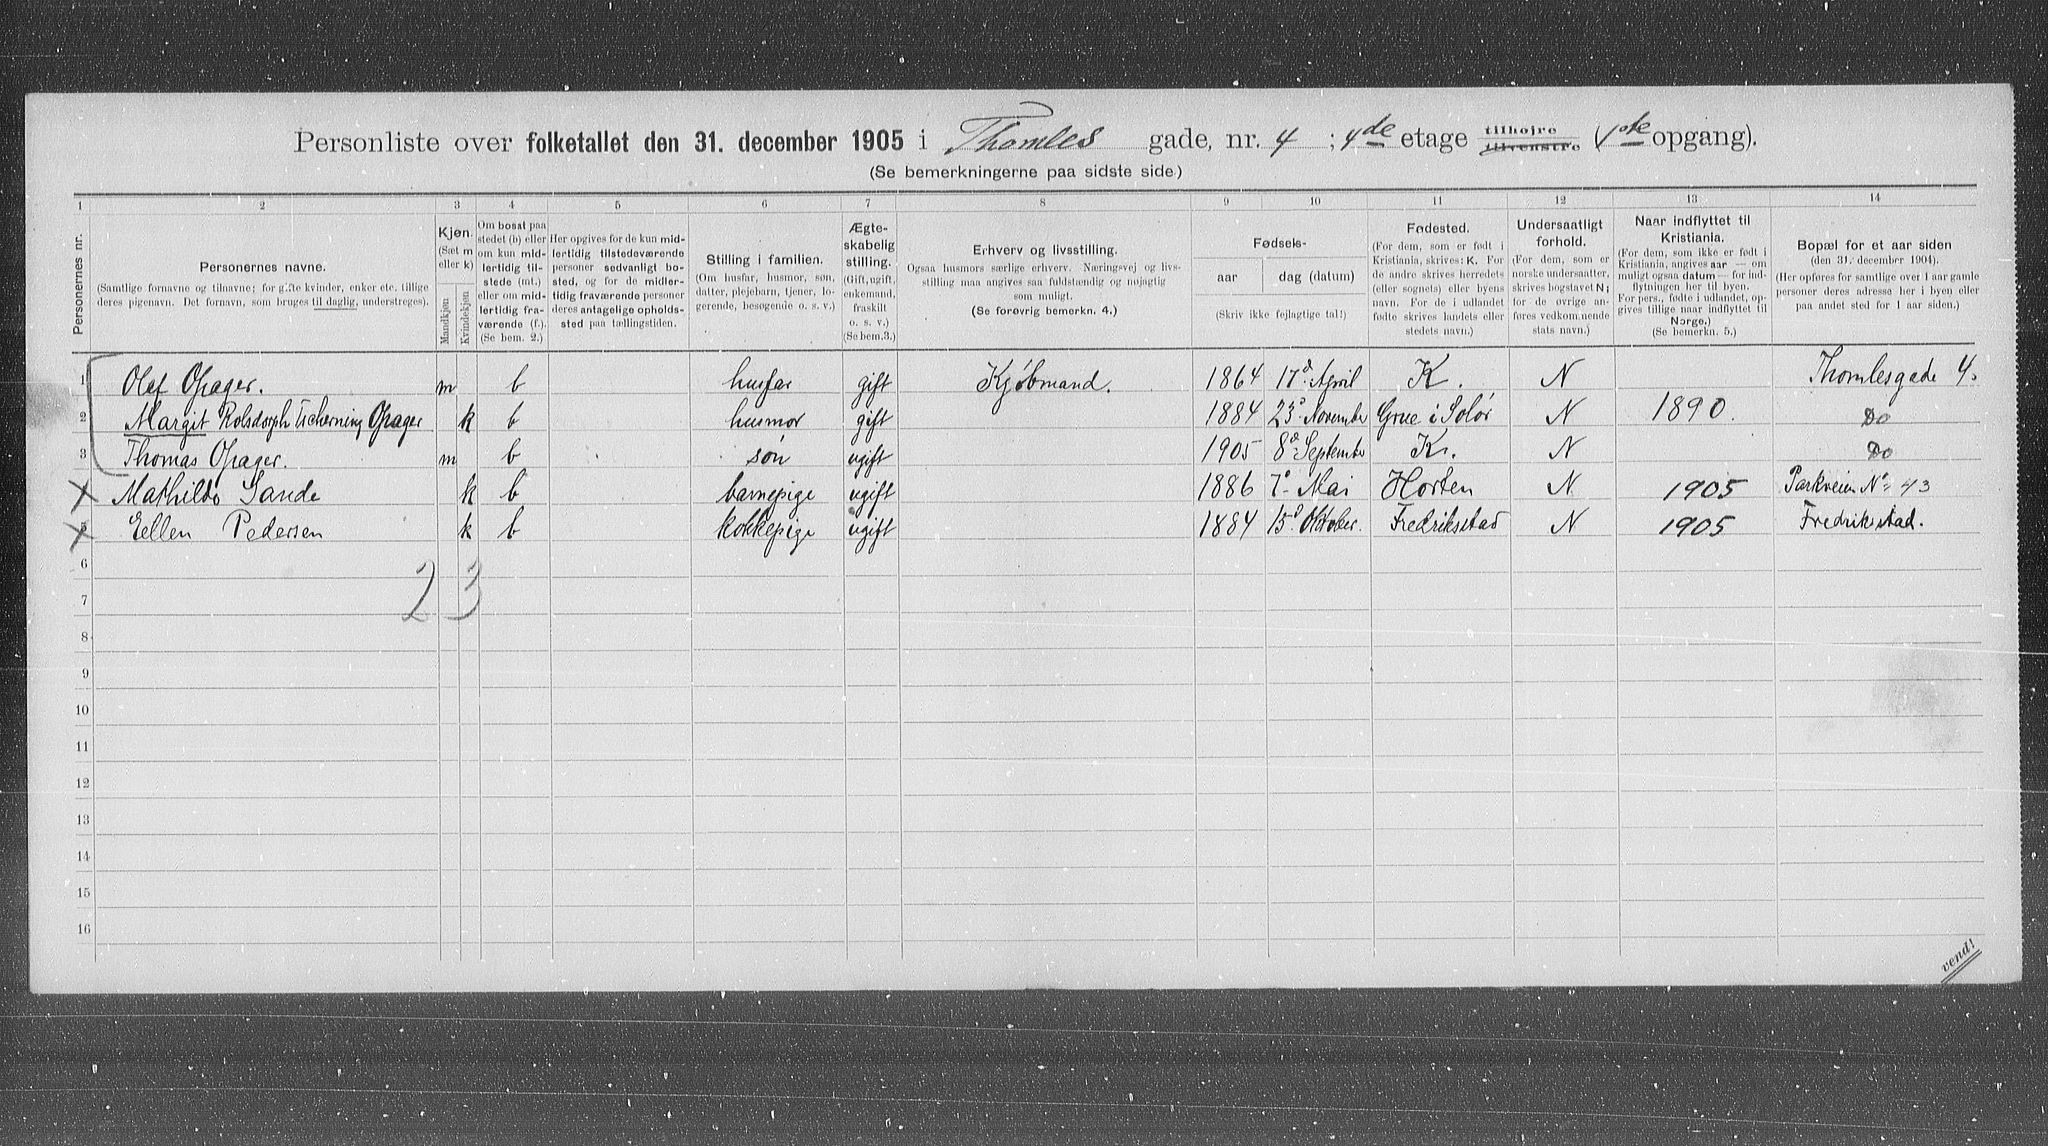 Personliste over folketallet den 31. december 1905 i Thomles gade, nr. 4 ; 4de etage tilhøjre tilvenstre (Vste opgang).
(Se bemerkningerne paa sidste side.)
1 2 3 4 5 6 7 8 9 10 11 12 13 14
Personernes nr.
Personernes navne.
(Samtlige fornavne og tilnavne; for gifte kvinder, enker etc. tillige deres pigenavn. Det fornavn, som bruges til daglig, understreges).
Kjøn.
(Sæt m eller k)
Mandkjøn
Kvindekjøn
Om bosat paa stedet (b) eller om kun midlertidig tilstede (mt.) eller om midlertidig fraværende (f.). (Se bem. 2.)
Her opgives for de kun midlertidig tilstedeværende personer sedvanligt bosted, og for de midlertidig fraværende personer deres antagelige opholdssted paa tællingstiden.
Stilling i familien.
(Om husfar, husmor, søn, datter, plejebarn, tjener, logerende, besøgende o. s. v.)
Ægteskabelig stilling.
(Gift, ugift, enkemand, fraskilt o. s. v.) (Se bem.3.)
Erhverv og livsstilling.
Ogsaa husmors særlige erhverv. Næringsvej og livsstilling maa angives saa fuldstændig og nøjagtig som muligt.
(Se forøvrig bemerkn. 4.)
Fødsels-
aar
dag (datum)
(Skriv ikke fejlagtige tal!)
Fødested.
(For dem, som er født i Kristiania, skrives: K. For de andre skrives herredets (eller sognets) eller byens navn. For de i udlandet fødte skrives landets eller stedets navn.)
Undersaatligt forhold.
(For dem, som er norske undersaatter, skrives bogstavet N; for de øvrige anføres vedkommende stats navn.)
Naar indflyttet til Kristiania.
(For dem, som ikke er født i Kristiania, angives aar — om muligt ogsaa datum — for indflytningen her til byen. For pers., fødte i udlandet, opgives tillige naar indflyttet til Norge.)
(Se bemerkn. 5.)
Bopæl for et aar siden
(den 31. december 1904).
(Her opføres for samtlige over 1 aar gamle personer deres adresse her i byen eller paa andet sted for 1 aar siden.)
1 Olaf Opsager. m b husfar gift Kjøbmand. 1864 17d April K. N Thomlesgade 4.
2 Margit Rolsdorph Tscherning Opsager k b husmor gift 1884 23d November Grue i Solør N 1890. Do
3 Thomas Opsager. m b søn ugift 1905 8d September K. N Do
4 Mathilde Sande k b barnepige ugift 1886 7d Mai Horten N 1905 Parkveien No 43
5 Ellen Pedersen k b kokkepige ugift 1884 15d Oktober. Fredriksstad N 1905 Fredriksstad.
6
2 3
7
8
9
10
11
12
13
14
15
16
vend!